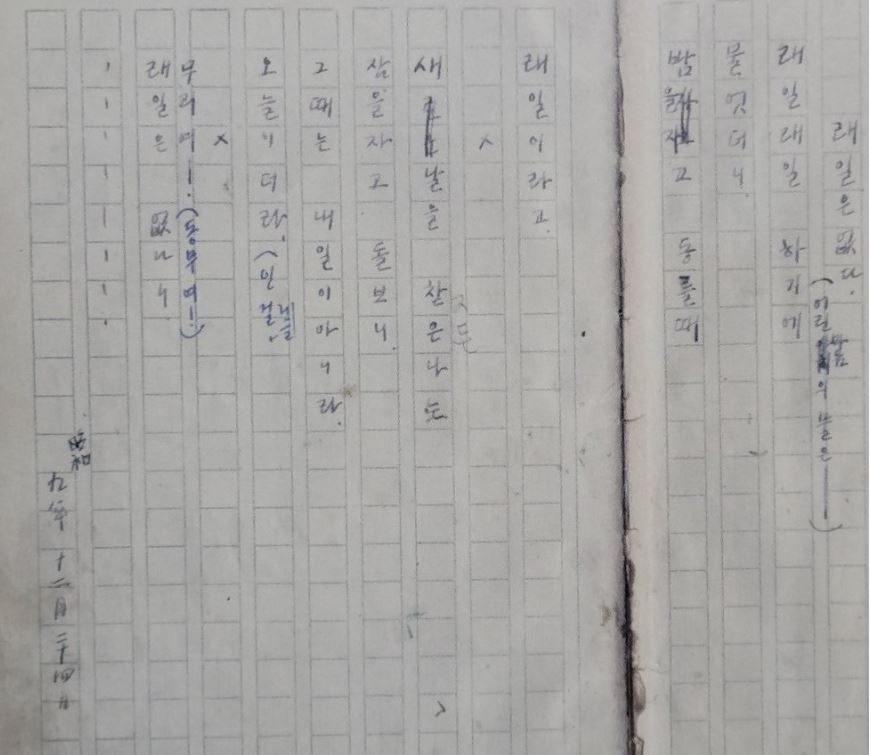 래일은 없다.
(어린 의 물은———)
래일래일 하기에
물엇더니
밤을자고 동틀때
래일이라고
×
새날을 찾은나는
잠을자고 돌보니
그때는 내일이아니라
오늘이더라.
×
무리여! (동무여!)
래일은 없나니
- - - - - - -
昭和九年 十二月二十四日